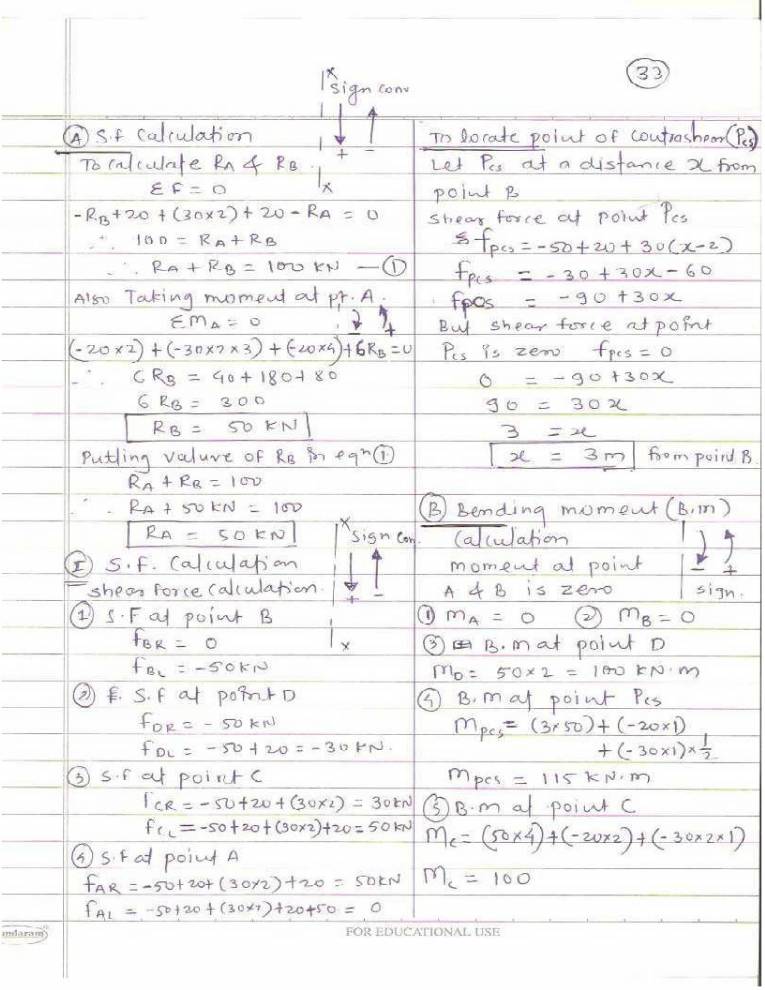 33
x
sign conv
+ -
x
(A) S.f Calculation
To calculate RA & RB.
ΣF = 0
-RB+20+(30x2)+20-RA = 0
∴ 100 = RA+RB
∴ RA+RB = 100 KN — (1)
Also Taking moment at pt. A.
ΣMA = 0
- +
(-20x2)+(-30x2x3)+(-20x4)+6RB=0
∴ 6RB = 40+180+80
6RB = 300
RB = 50 KN
Putting valure of RB in eqn (1)
RA+RB = 100
∴ RA+50KN = 100
RA = 50KN
x sign con.
(I) S.F. Calculation
+ -
shear force calculation.
x
(1) S.F at point B
fBR = 0
fBL = -50KN
(2) S.F at point D
fDR = -50KN
fDL = -50+20 = -30KN.
(3) S.F at point C
fCR = -50+20+(30x2) = 30KN
fCL = -50+20+(30x2)+20 = 50KN
(4) S.f at point A
fAR = -50+20+(30x2)+20 = 50KN
fAL = -50+20+(30x2)+20+50 = 0
To locate point of contrashear (Pcs)
Let Pcs at a distance x from
point B
shear force at point Pcs
fpcs = -50+20+30(x-2)
fpcs = -30+30x-60
fpcs = -90+30x
But shear force at point
Pcs is zero fpcs = 0
0 = -90+30x
90 = 30x
3 = x
x = 3m from point B.
(B) Bending moment (B.m)
Calculation
moment at point
- +
A & B is zero
sign.
(1) mA = 0 (2) mB = 0
(3) B.m at point D
MD = 50x2 = 100 KN.m
(4) B.m at point Pcs
Mpcs = (3x50)+(-20x1)
+(-30x1)x1/2
Mpcs = 115 KN.m
(5) B.m at point C
Mc = (50x4)+(-20x2)+(-30x2x1)
Mc = 100
ndaram
FOR EDUCATIONAL USE